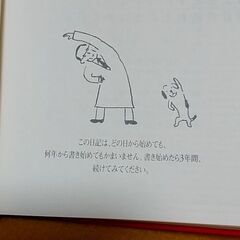 この日記は、どの日から始めても、
何年から書き始めてもかまいません。書き始めたら3年間、
続けてみてください。